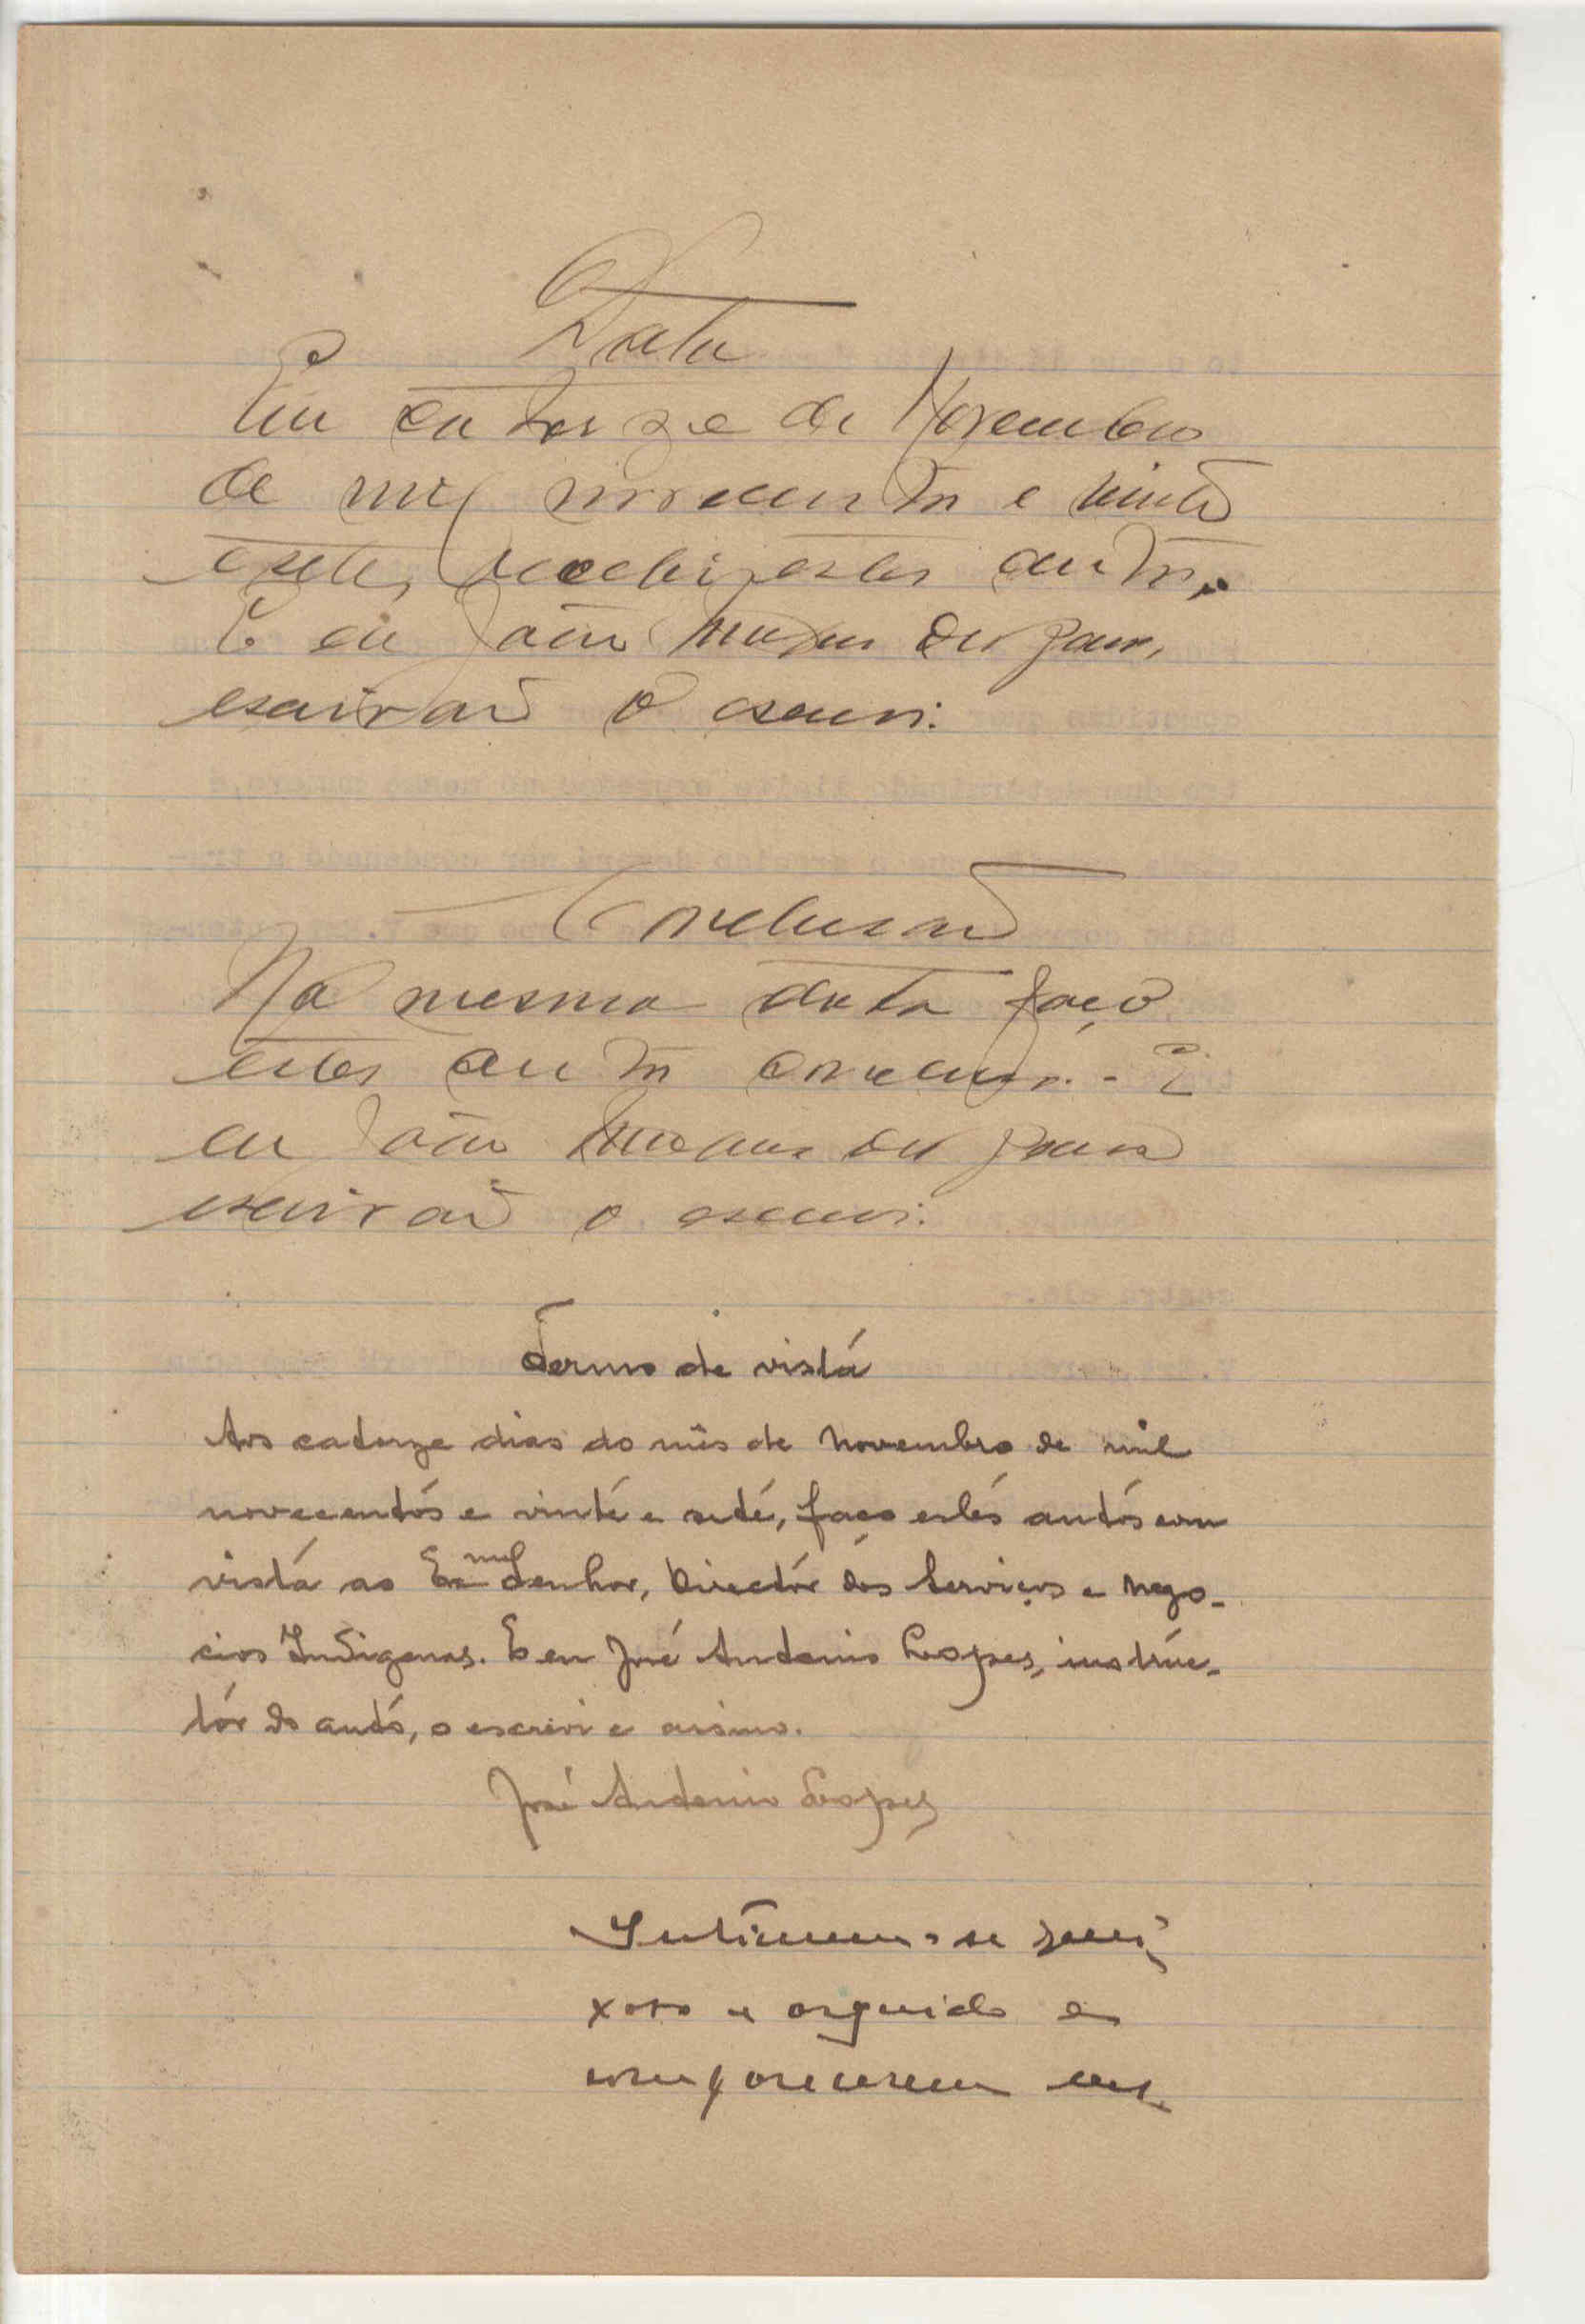 Data
Em catorze de Novembro
de mil novecentos e vinte
e sete, recebi estes autos.
E eu João
escrivão o escrevi.
Conclusão
Na mesma data faço
estes autos conclusos. - E
eu João
escrivão o escrevi.
Termo de vistá
Aos catorze dias do mês de Novembro de mil
novecentós e vinté e seté, faço estés autós com
vistá ao Exmº Senhor, Directór dos Serviços e Nego-
cios Indigenas. E eu José Antonio Lopes, instrúc-
tór do autó, o escrevi e assino.
José Antonio Lopes
Intimem-se quei-
xoso e arguido a
comparecerem